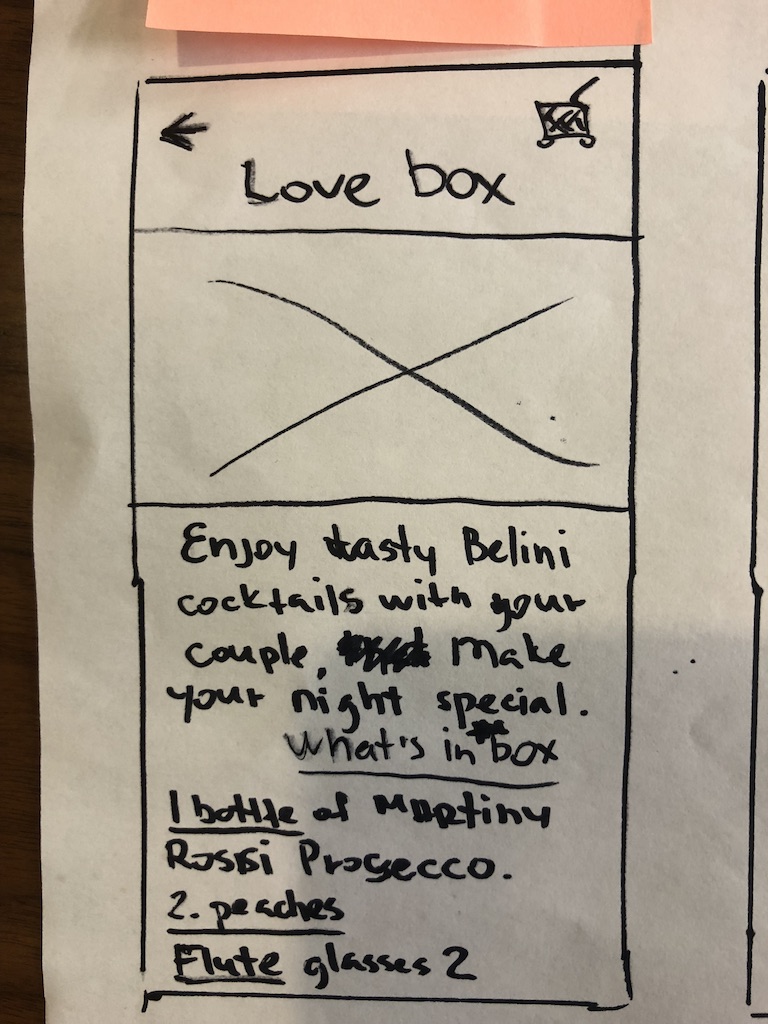 Love box
Enjoy tasty Belini
cocktails with your
couple, make
your night special.
What's in the box
1 bottle of Martiny
Rossi Prosecco.
2. peaches
Flute glasses 2